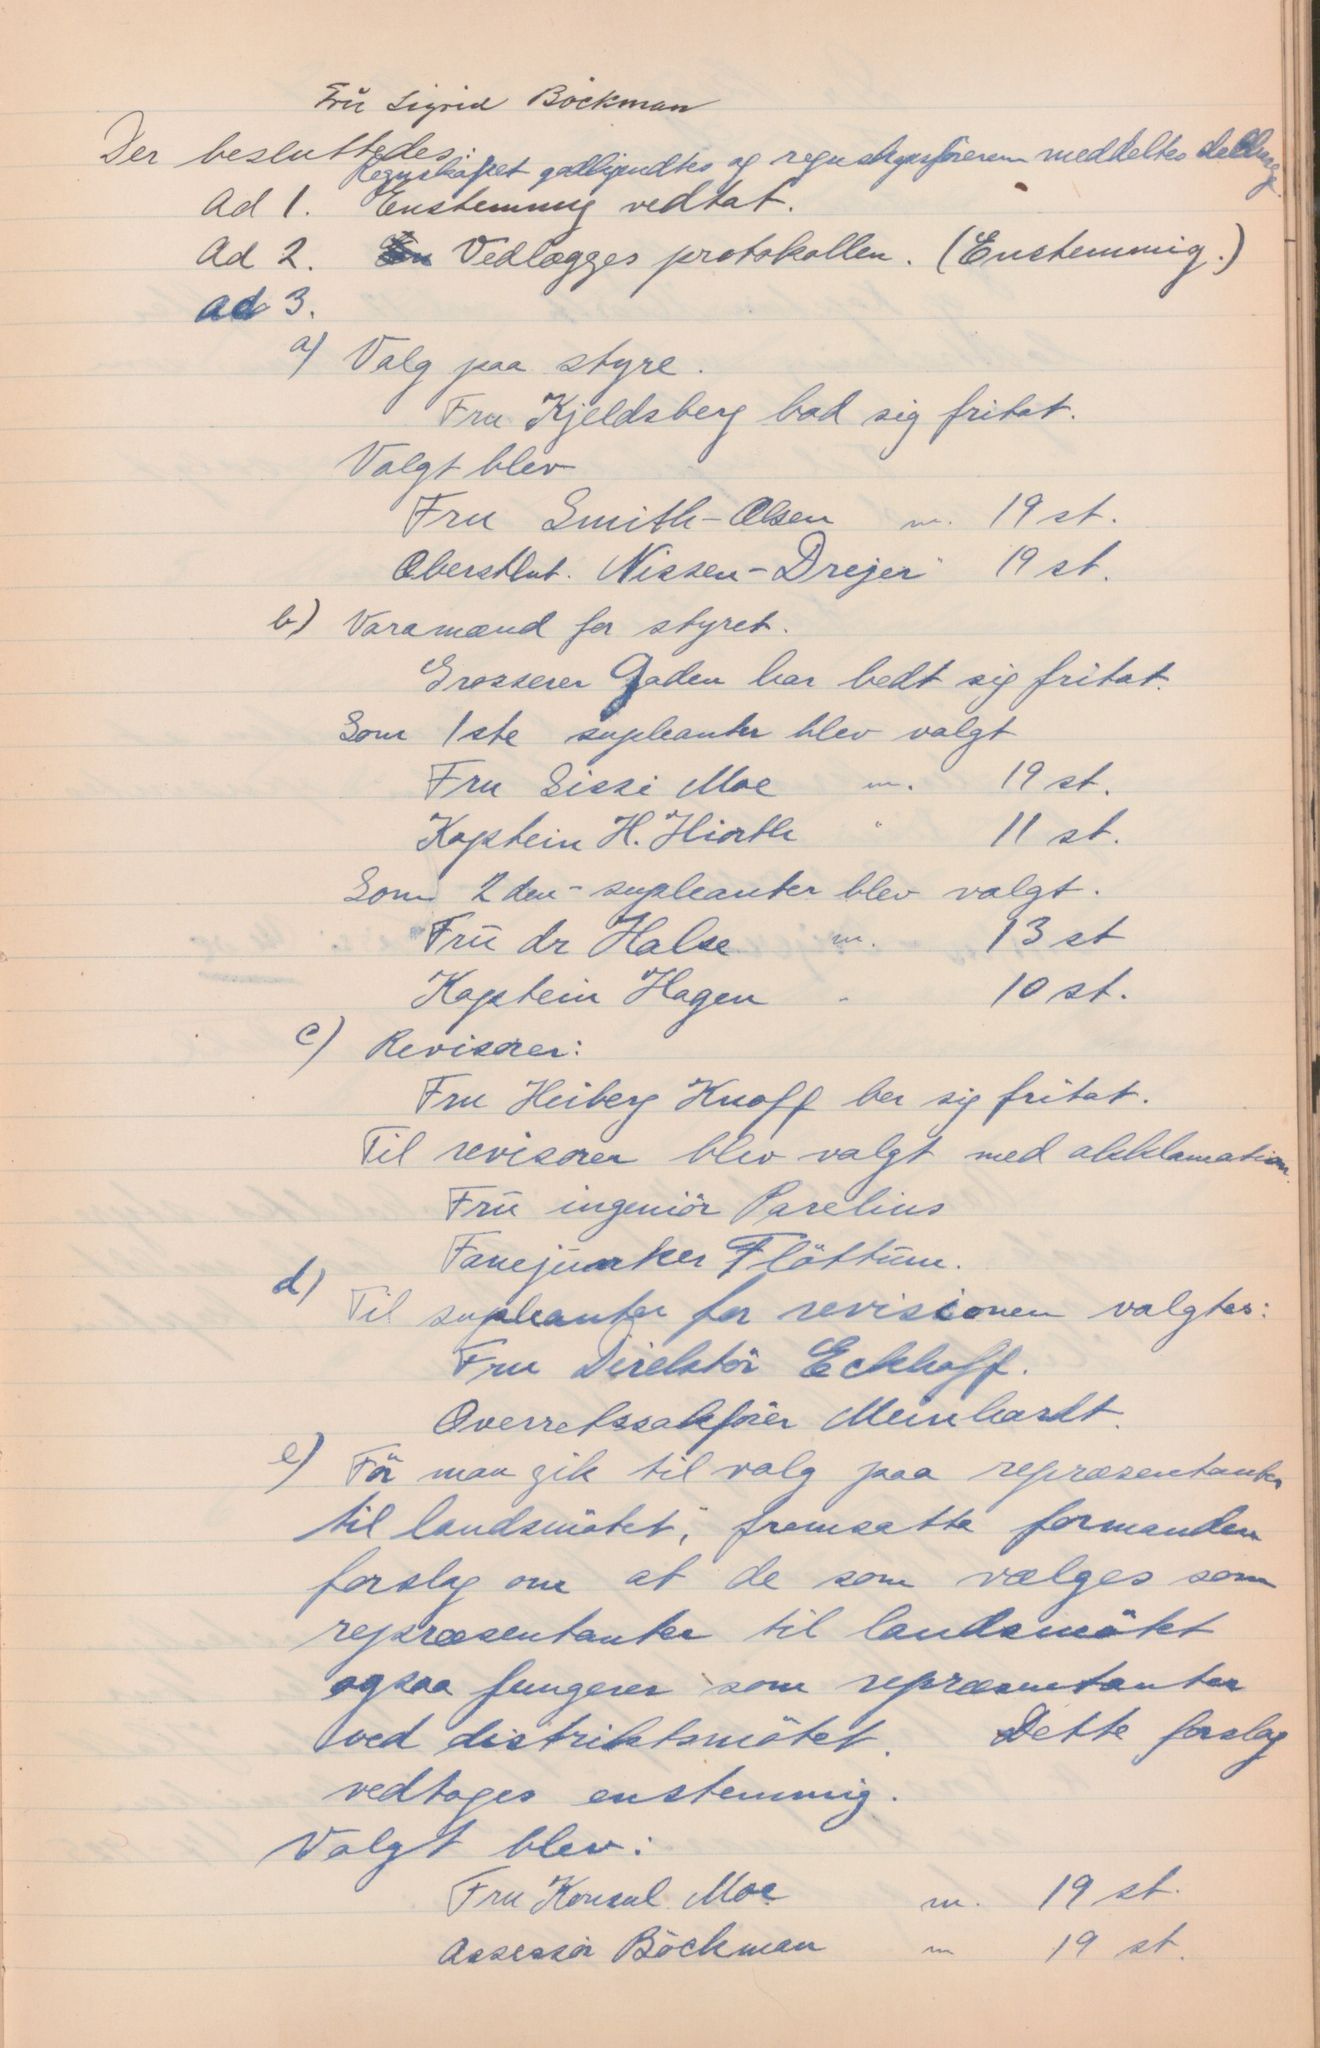 Frŭ Sigrid Böckman
Der besluttedes:
Regnskapet godkjendtes og regnskapsföreren meddeltes decharge.
Ad 1. Enstemmig vedtat.
Ad 2. Vedlægges protokollen. (Enstemmig.)
Ad 3.
a) Valg paa styre.
Fru Kjeldsberg bad sig fritat.
Valgt blev
Fru Smith-Olsen m. 19 st.
Oberstlut. Nissen-Drejer " 19 st.
b) Varamænd for styret.
Grosserer Gaden har bedt sig fritat.
Som 1ste supleanter blev valgt
Fru Sissi Moe m. 19 st.
Kaptein H. Hiorth " 11 st.
Som 2den-supleanter blev valgt.
Frŭ dr Halse m. 13 st
Kaptein Hagen " 10 st.
c) Revisorer:
Fru Heiberg Knoff ber sig fritat.
Til revisorer blev valgt med akklamation.
Frŭ ingeniör Parelius
Fanejunker Flöttum.
d) Til supleanter for revisionen valgtes:
Fru Direktör Eckhoff.
Overretssakförer Meinhardt.
e) För man gik til valg paa repræsentanter
til landsmötet, fremsatte formanden
forslag om at de som vælges som
repræsentanter til landsmötet
ogsaa fungerer som repræsentanter
ved distriktsmötet. Dette forslag
vedtoges enstemmig.
Valgt blev:
Fru Konsul Moe m. 19 st.
Assessor Böckman m 19 st.